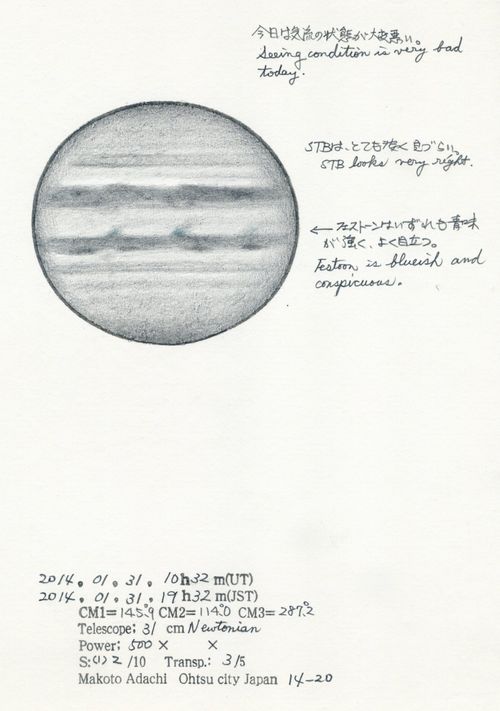 今日は気流の状態が大変悪い。
Seeing condition is very bad
today.
STBは、とても淡く見づらい。
STB looks very right.
← フェストーンはいずれも青味
が強く、よく目立つ。
Festoon is blueish and
conspicuous.
2014. 01. 31. 10h32 m(UT)
2014. 01. 31. 19h32 m(JST)
CM1=145.°9 CM2=114.°0 CM3=287.°2
Telescope; 31 cm Newtonian
Power; 500 × ×
S:(1) 2 /10 Transp.: 3/5
Makoto Adachi Ohtsu city Japan 14-20